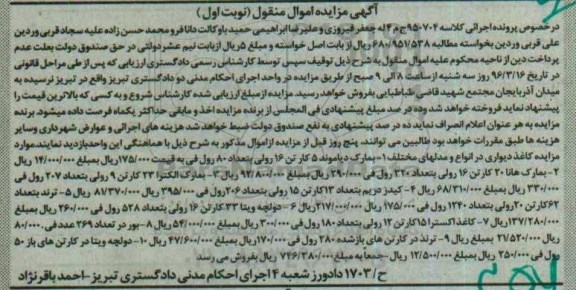 آگهی مزایده اموال منقول (نوبت اول)
درخصوص پرونده اجرائی کلاسه ۹۵۰۷۰۴ج۴ له صفر فیروزی و علیرضا ابراهیمی حمید باوکالت دانا فرو محمد حسن زاده علیه سجاد قربی وردین
علی قربی وردین بخواسته مطالبه ۶۸۰/۹۵۷/۵۳۸ ریال از بابت اصل خواسته و مبلغ ریال از بابت نیم عشر دولتی در حق صندوق دولت بعلت عدم
پرداخت دین از ناحیه محکوم علیه اموال منقول به شرح ذیل توقیف سپس توسط کارشناس رسمی دادگستری ارزیابی که پس از طی مراحل قانونی
در تاریخ ۹۶/۳/۱۶ روز سه شنبه از ساعت ۸ الی ۹ صبح از طریق مزایده در واحد اجرای احکام مدنی دو دادگستری تبریز واقع در تبریز نرسیده به
میدان آذربایجان مجتمع شهید قاضی طباطبایی بفروش خواهد رسید. مزایده از مبلغ ارزیابی شده کارشناس شروع و به کسی که بالاترین قیمت را
پیشنهاد نماید فروخته خواهد شد وده در صد مبلغ پیشنهادی فی المجلس از برنده مزایده اخذ و مابقی حداکثر یکماه فرصت داده میشود. برنده
مزایده به هر عنوان اعلام انصراف نماید ده در صد پیشنهادی به نفع صندوق دولت ضبط خواهد شد هزینه های اجرائی و عوارض شهرداری وسایر
هزینه ها طبق مقررات خواهد بود طالبین می توانند، پنج روز قبل از مزایده ازاموال مذکور به شرح ذیل با هماهنگی این واحدبازدید نمایند.موارد
مزایده کاغذ دیواری در انواع و مدلهای مختلف ۱- بمارک دیاموند ۵ کارتن ۱۶ رولی بتعداد ۸۰ رول فی به قیمت ۱۷۵/۰۰۰ ریال بمبلغ ۱۴/۰۰۰/۰۰۰ ریال
۲- بمارک هانا ۲۰ کارتن ۱۶ رولی بتعداد ۳۲۰ رول فی ۲۹۰/۰۰۰ ریال بمبلغ ۹۲/۸۰۰/۰۰۰ ریال ۳- بمارک الکترا ۲۳ کارتن ۹ رولی بتعداد ۲۰۷ رول فی
۳۳۰/۰۰۰ ریال بمبلغ ۶۸/۳۱۰/۰۰۰ ریال ۴- کیدز دریم بتعداد ۱۳ کارتن ۱۵ رولی بتعداد ۲۰۶ رول فی ۳۹۵/۰۰۰ ریال ۸۷۳۷۰/۰۰۰ ریال ۵- ترند بتعداد
۶۲ کارتن ۲۰ رولی بتعداد ۱۲۴۰ رول فی ۱۷۵/۰۰۰ ریال ۲۱۷/۰۰۰/۰۰۰ ریال ۶- دولچه ویتا ۳۳ کارتن ۱۶ رولی بتعداد ۵۲۸ رول فی ۲۶۰/۰۰۰ ریال بمبلغ
۱۳۷/۲۸۰/۰۰۰ ریال ۷- کاغذ اکسترا ۱۵ کارتن ۱۲ رولی بتعداد ۱۸۰ رول فی ۳۰۰/۰۰۰ ریال بمبلغ ۵۴/۰۰۰/۰۰۰ ریال ۸- بور در تعداد ۲۶۹ عدد فی ۸۰/۰۰۰
ریال ۲۱/۵۲۰/۰۰۰ بمبلغ ریال ۹- ترند در کارتن های باز شده ۲۸۰ رول فی ۱۷۰/۰۰۰ ریال بمبلغ ۴۷/۶۰۰/۰۰۰ ریال ۱۰- دولچه ویتا در کارتن های باز ۵۰
رول فی ۲۵۰/۰۰۰ ریال بمبلغ ۱۲/۵۰۰/۰۰۰ ریال - جمعا به مبلغ ۷۴۶/۳۸۰/۰۰۰ ریال بفروش می رسد
ح/۱۷۰۳ دادورز شعبه ۴ اجرای احکام مدنی دادگستری تبریز - احمد باقرنژاد